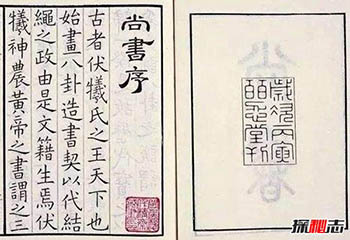 尚書序
古者伏犧氏之王天下也
始畫八卦造書契以代結
繩之政由是文籍生焉伏
犧神農黃帝之書謂之三
探秘志